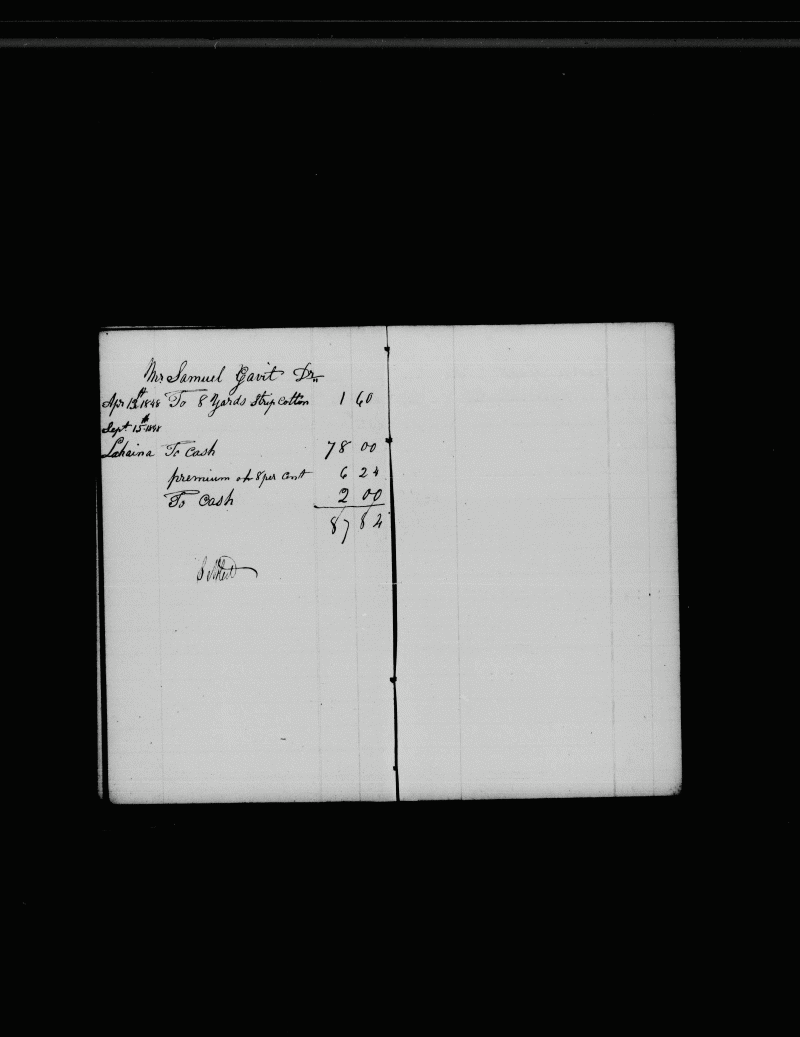 Mr Samuel Gavit Dr
Apr 13th 1848 To 8 Yards Strip Cotton 1 60
Sept 15th 1848
Lahaina To Cash 78 00
premium of 8 per cent 6 24
To Cash 2 00
87 84